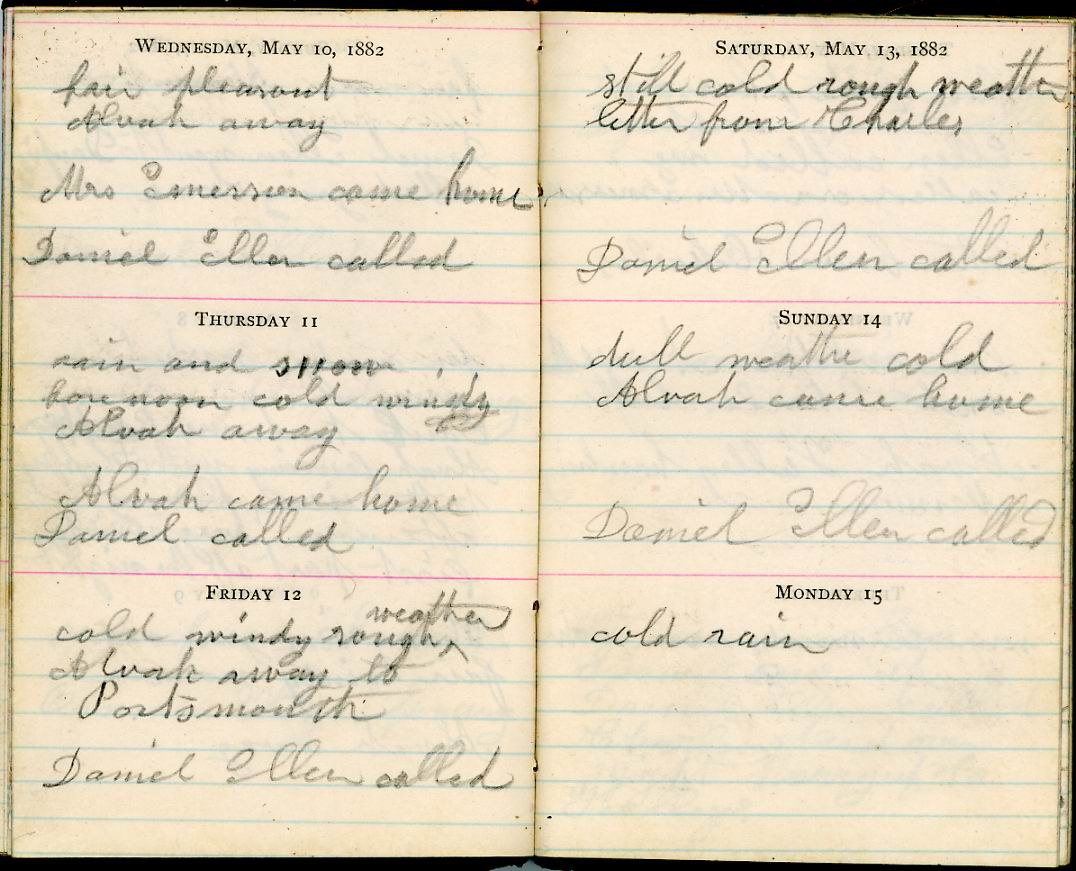 WEDNESDAY, MAY 10, 1882
fair pleasant
Alvah away
Mrs Emerson came home
Daniel Ellen called
THURSDAY 11
rain and snow
fore noon cold windy
Alvah away
Alvah came home
Daniel called
FRIDAY 12
weather
cold windy rough ^
Alvah away to
Portsmouth
Daniel Ellen called
SATURDAY, MAY 13, 1882
still cold rough weather
letter from Charles
Daniel Ellen called
SUNDAY 14
dull weathe cold
Alvah came home
Daniel Ellen called
MONDAY 15
cold rain